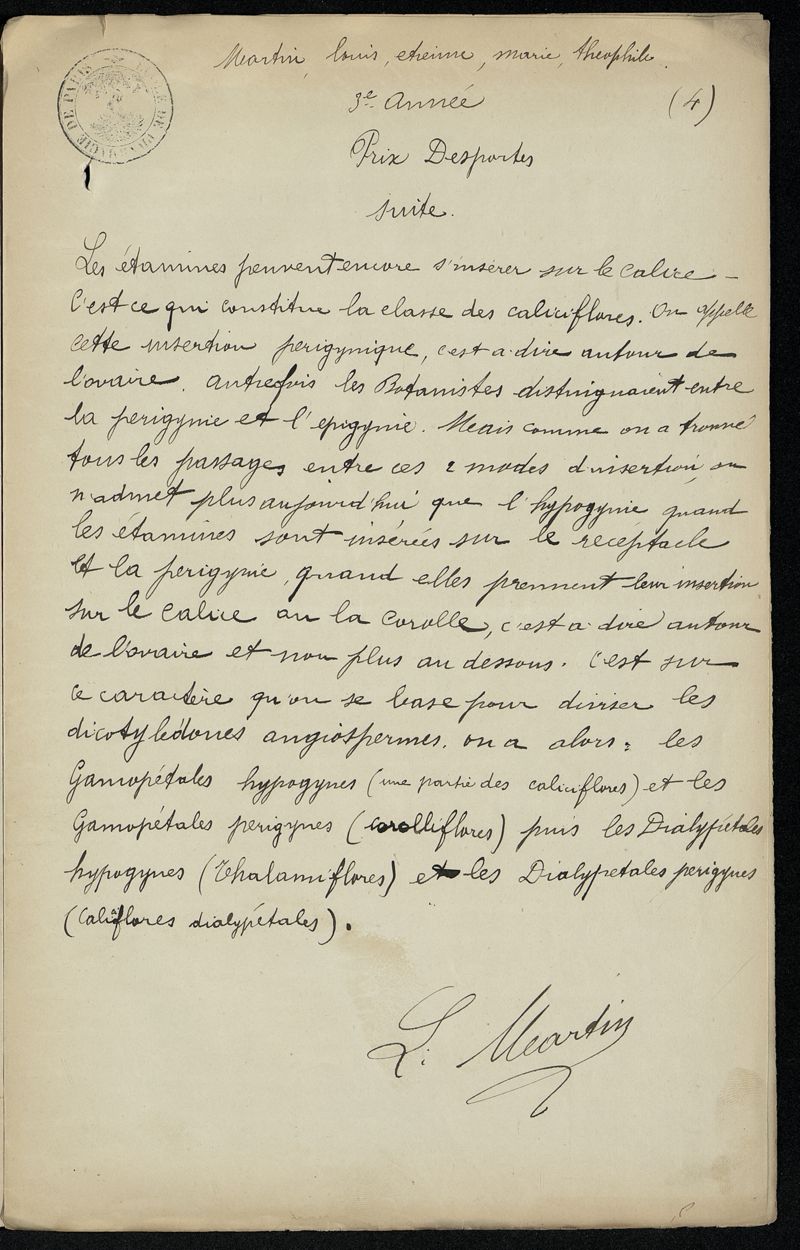 Martin, louis, etienne, marie, théophile.
ECOLE DE PHARMACIE DE PARIS
3e année
(4)
Prix Desportes
suite.
Les étamines peuvent encore s'insérer sur le calice –
C'est ce qui constitue la classe des caliciflores. On appelle
cette insertion perigynique, c'est a dire autour de
l'ovaire. Autrefois les Botanistes distinguaient entre
la perigynie et l'epigynie. Mais comme on a trouvé
tous les passages entre ces 2 modes d'insertion, on
n'admet plus aujourd'hui que l'hypogynie quand
les étamines sont insérées sur le receptacle
et la perigynie, quand elles prennent leur insertion
sur le calice ou la corolle, c'est a dire autour
de l'ovaire et non plus au dessous. C'est sur
ce caractère qu'on se base pour diviser les
dicotylédones angiospermes. on a alors: les
Gamopétales hypogynes (une partie des caliciflores) et les
Gamopétales perigynes (corolliflores) puis les Dialypetales
hypogynes (Thalamiflores) et les Dialypetales perigynes
(caliciflores dialypétales).
L. Martin